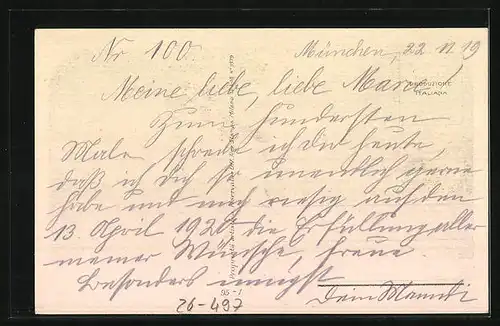 Nr 100.
München, 22 11 19
PRODUZIONE
ITALIANA
Meine liebe, liebe
Zum hundersten
Male schreibe ich dir heute,
daß ich Dich so unendlich gerne
habe und mich riesig auf den
13 April 1920 die Erfüllung aller
meiner Wünsche, freue
Besonders innigst
Dein
95 - 1
26-497